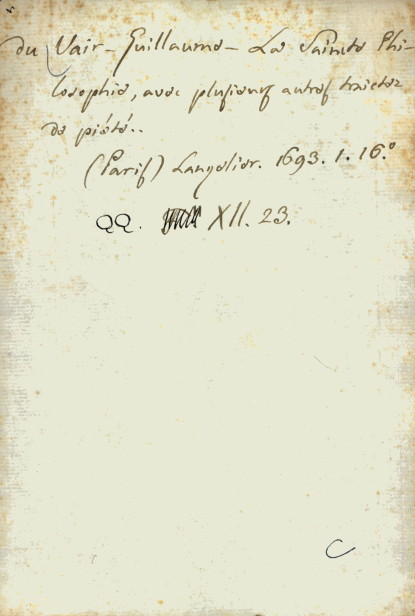 du Vair - Guillaume - La Saincte Phi-
losophie, avec plusieurs autres traictez
de piété..
(Paris) Langelier. 1693. 1. 16.°
QQ. XII. 23.
C